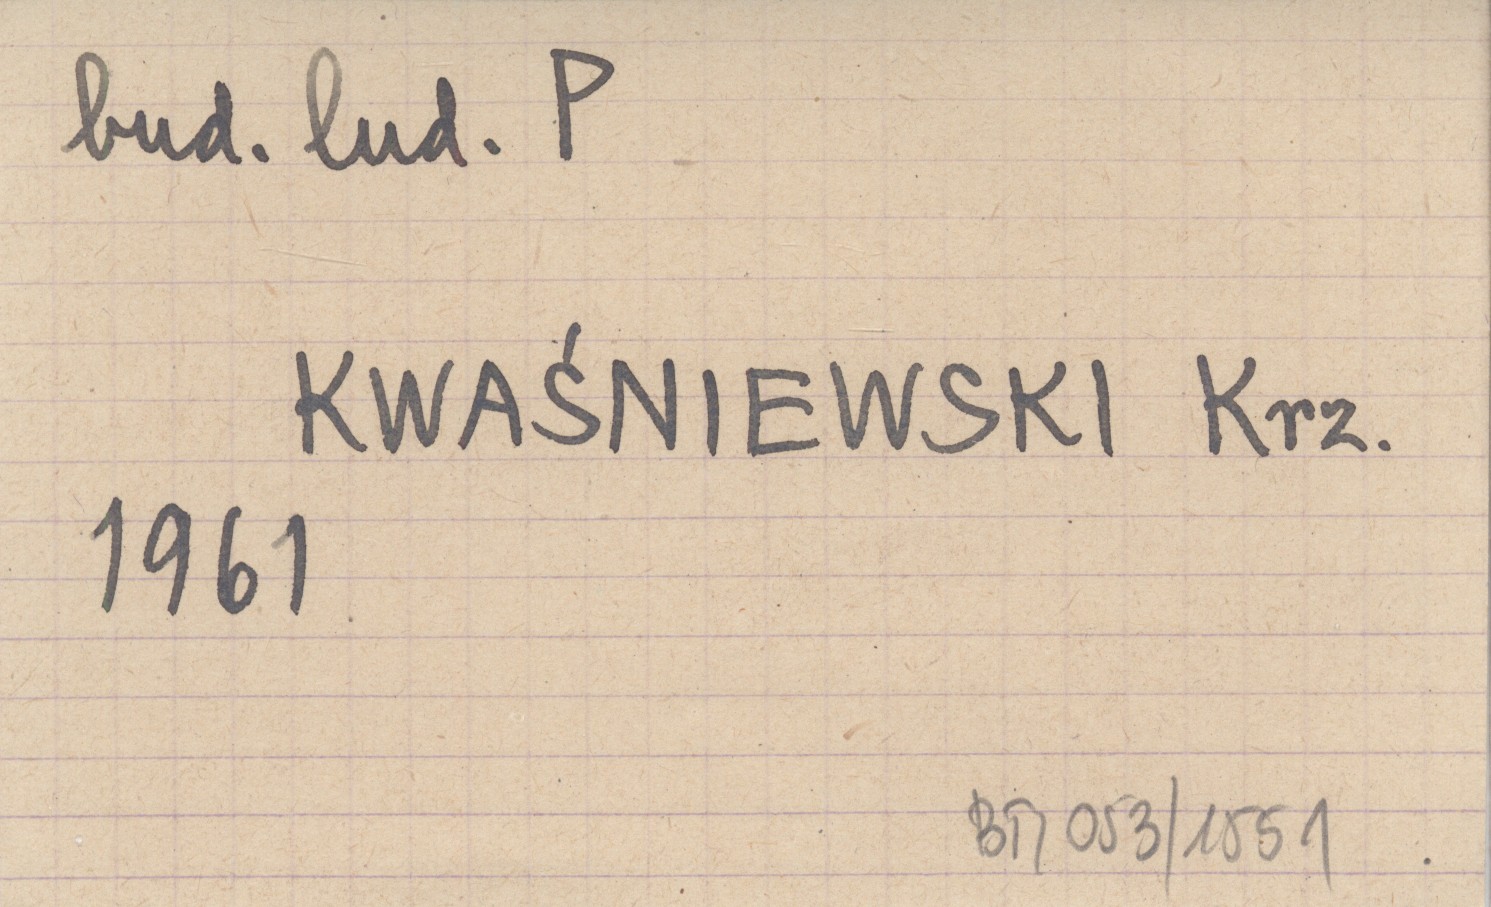 bud. lud. P
KWAŚNIEWSKI Krz.
1961
053/1551